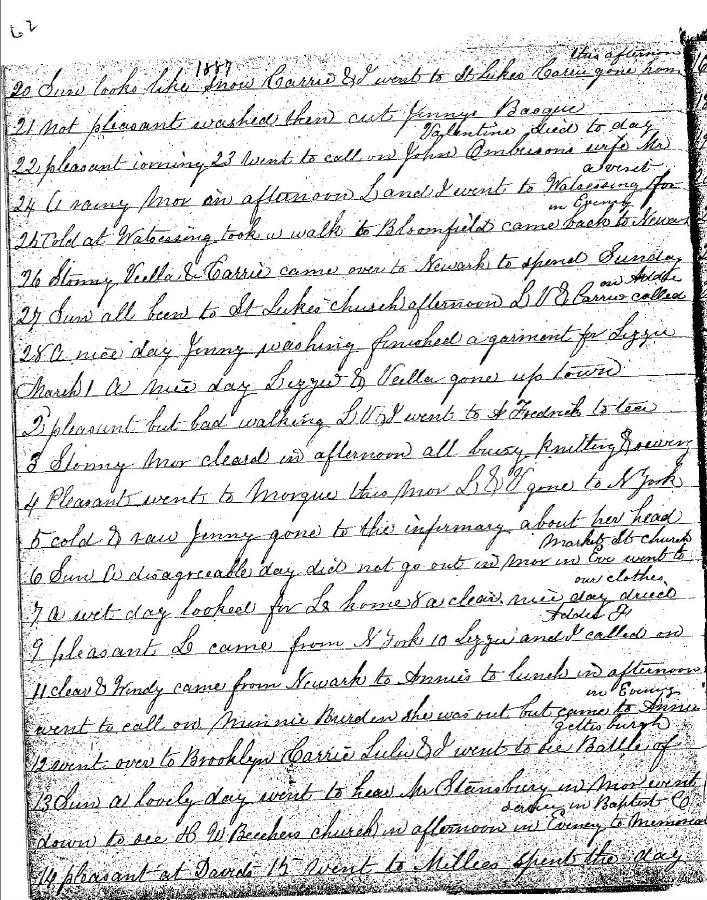 62
1887
this afternoon
20 Sun looks like snow Carrie & I went to St Lukes Carrie gone home
21 not pleasant washed then cut Jennys Basque
Valentine died to day
22 pleasant 23 went to call on John wife Mr
a visit
24 A rainy Mor in afternoon L and I went to Watcessing for
in Evening
25 Cold at Watcessing took a walk to Bloomfield came back to Newark
26 Stormy Veella & Carrie came over to Newark to spend Sunday
on Addie
27 Sun all been to St Lukes church afternoon L V & Carrie called
28 A nice day Jenny washing finished a garment for Lizzie
March 1 A nice day Lizzie & Veella gone up town
2 pleasant but bad walking L V & I went to A Fredrick to tea
3 Stormy Mor cleard in afternoon all busy knitting & sewing
4 Pleasant went to Morgue this Mor L & V gone to N York
5 cold & raw Jenny gone to the infirmary about her head
Market St church
6 Sun A disagreeable day did not go out in Mor in Eve went to
our clothes
7 a wet day looked for L home 8 a clear nice day dried
Addie
9 pleasant L came from N York 10 Lizzie and I called on
11 clear & Windy came from Newark to Annies to lunch in afternoon
in Evening
went to call on Minnie Burden she was out but came to Annie
Gettisburgh
12 went over to Brooklyn Carrie Lulu & I went to see Battle of
13 Sun a lovely day went to hear Mr Stansbury in Mor went
in Baptist
down to see H W Beechers church in afternoon in Eveney to Memorial
14 pleasant at Davids 15 went to Millees spent the day